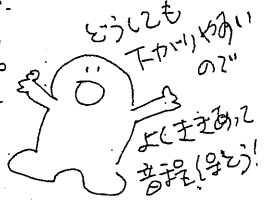 どうしても
下がりやすい
ので
よくききあって
音程を保とう!